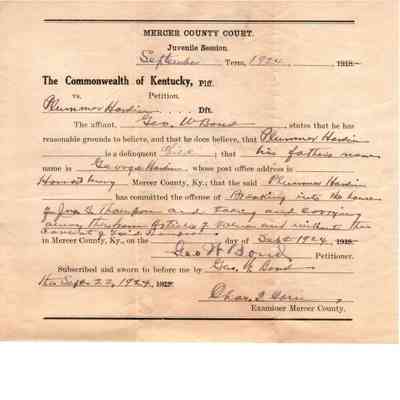 MERCER COUNTY COURT.
Juvenile Session.
September Term, 1924. 191
The Commonwealth of Kentucky, Plf.
vs. Petition.
Plummer Hardin .... Dft.
The affiant, Geo. W Bond, states that he has
reasonable grounds to believe, and that he does believe, that Plummer Hardin
is a delinquent Child; that his father's name
name is George Hardin whose post office address is
Mercer County, Ky; that the said Plummer Hardin
has committed the offense of Breaking into the house
of Jno. Thompson and taking and carrying
away therefrom articles of value and without the
consent of said Thompson
in Mercer County, Ky., on the day of Sept 1924, 191
Geo W Bond, Petitioner.
Subscribed and sworn to before me by Geo. W Bond
this Sept. 22, 1924, 191
Chas.
Examiner Mercer County.